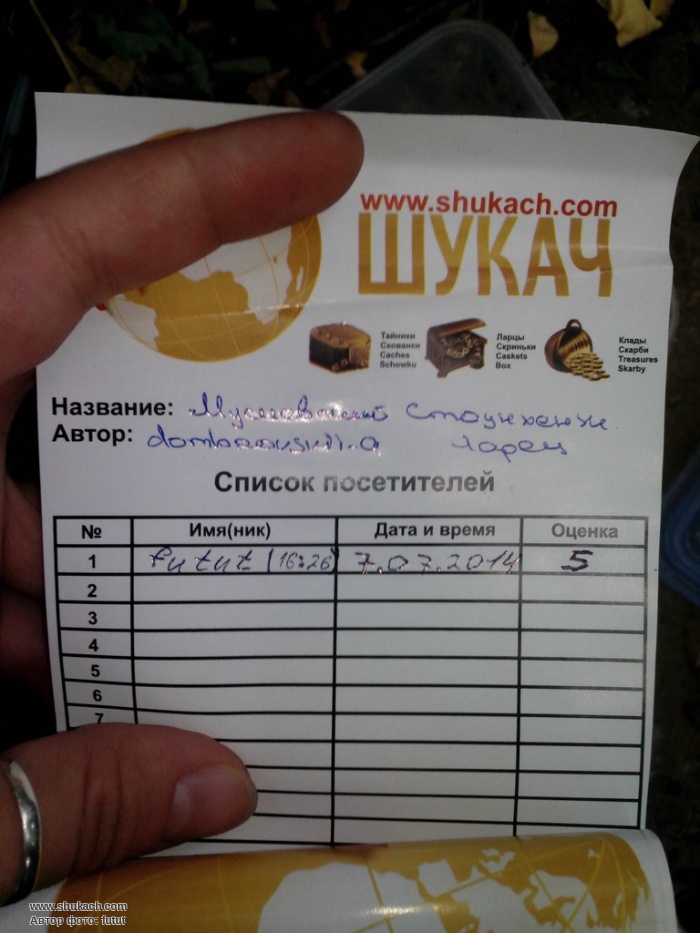 www.shukach.com
ШУКАЧ
Тайники
Схованки
Caches
Schowku
Ларцы
Скриньки
Caskets
Box
Клады
Скарби
Treasures
Skarby
Название: Стоунхенж
Автор: Ларец
Список посетителей
№ Имя(ник) Дата и время Оценка
1 futut (16:26) 7.07.2014 5
2
3
4
5
6
7
www.shukach.com
Автор фото: futut